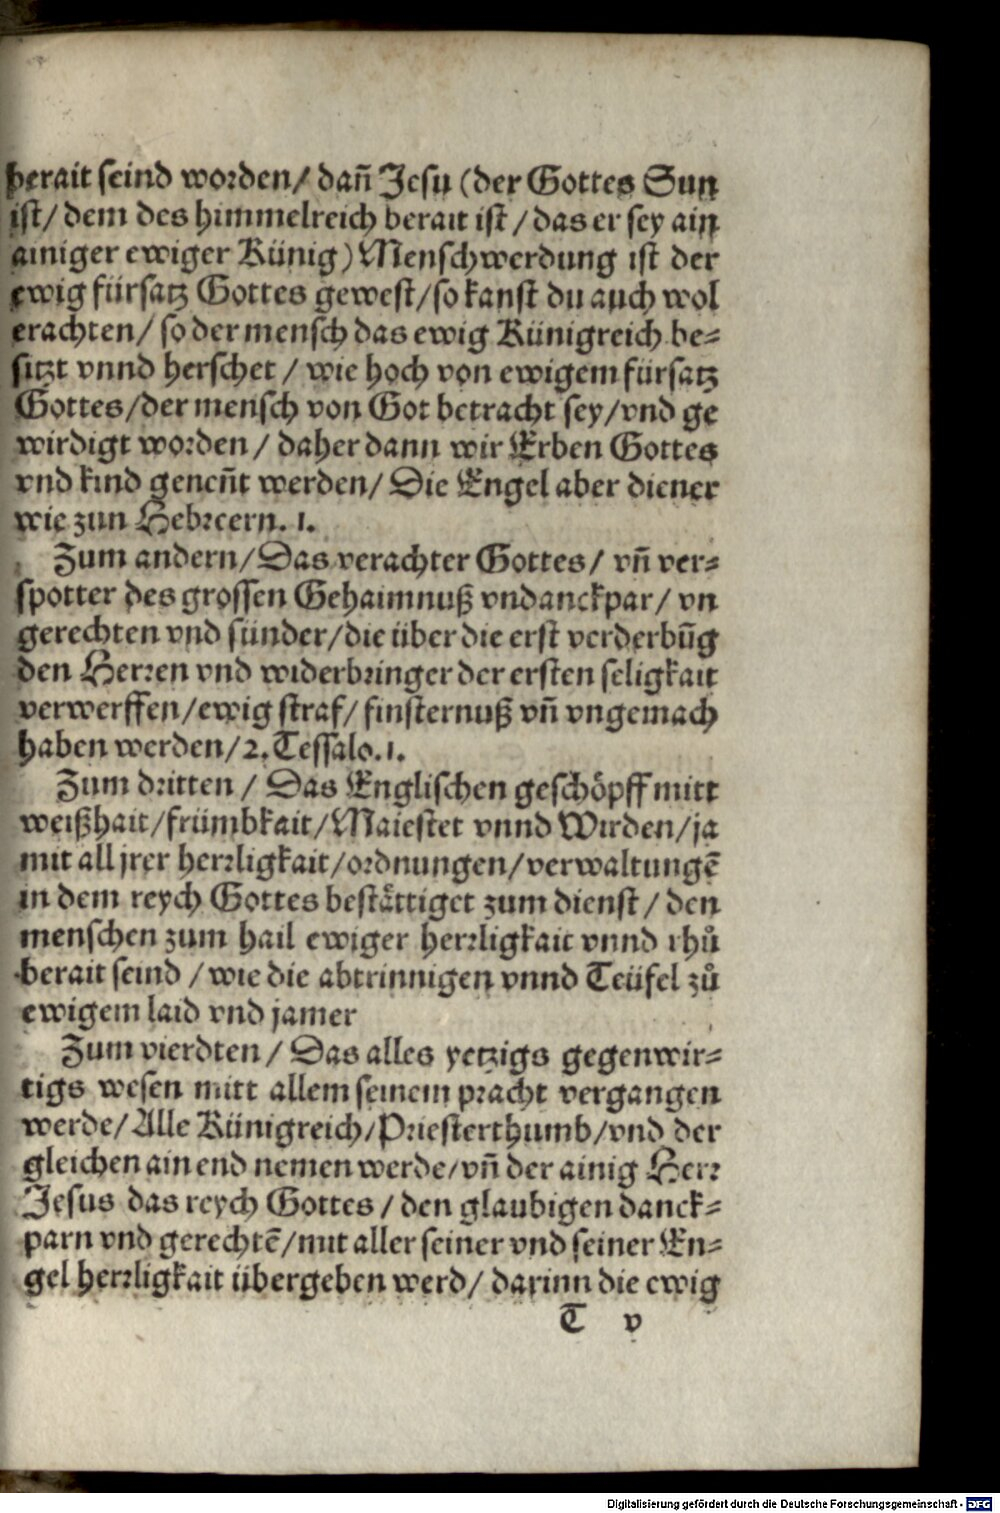 berait seind worden/ dañ Jesu (der Gottes Sun
ist/ dem des himmelreich berait ist/ das er sey ain
ainiger ewiger Künig) Menschwerdung ist der
ewig fürsatz Gottes gewest/ so kanst du auch wol
erachten/ so der mensch das ewig Künigreich be⸗
sitzt vnnd herschet / wie hoch von ewigem fürsatz
Gottes/ der mensch von Got betracht sey/ vnd ge
wirdigt worden / daher dann wir Erben Gottes
vnd kind geneñt werden/ Die Engel aber diener
wie zun Hebreern. 1.
Zum andern/ Das verachter Gottes/ vñ ver⸗
spotter des grossen Gehaimnuß vndanckpar/ vn
gerechten vnd sünder/ die über die erst verderbũg
den Herren vnd widerbringer der ersten seligkait
verwerffen/ ewig straf/ finsternuß vñ vngemach
haben werden/ 2. Tessalo. 1.
Zum dritten / Das Englischen geschöpff mitt
weißhait/ frümbkait/ Maiestet vnnd Wirden/ ja
mit all jrer herrligkait/ ordnungen/ verwaltungē
in dem reych Gottes bestättiget zum dienst/ den
menschen zum hail ewiger herrligkait vnnd rhů
berait seind / wie die abtrinnigen vnnd Teüfel zů
ewigem laid vnd jamer
Zum vierdten / Das alles yetzigs gegenwir⸗
tigs wesen mitt allem seinem pracht vergangen
werde/ Alle Künigreich/ Priesterthumb/ vnd der
gleichen ain end nemen werde/ vñ der ainig Herr
Jesus das reych Gottes / den glaubigen danck⸗
parn vnd gerechtē/ mit aller seiner vnd seiner En⸗
gel herrligkait übergeben werd/ darinn die ewig
T v
Digitalisierung gefördert durch die Deutsche Forschungsgemeinschaft - DFG